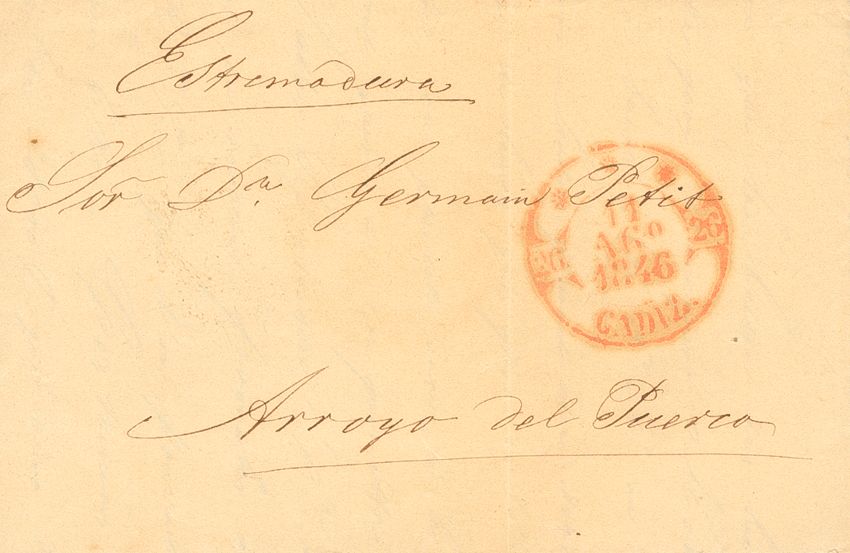 Estremadura
Sor Dn. Germain Petit
11
AGO
1846
26 26
CADIZ.
Arroyo del Puerco